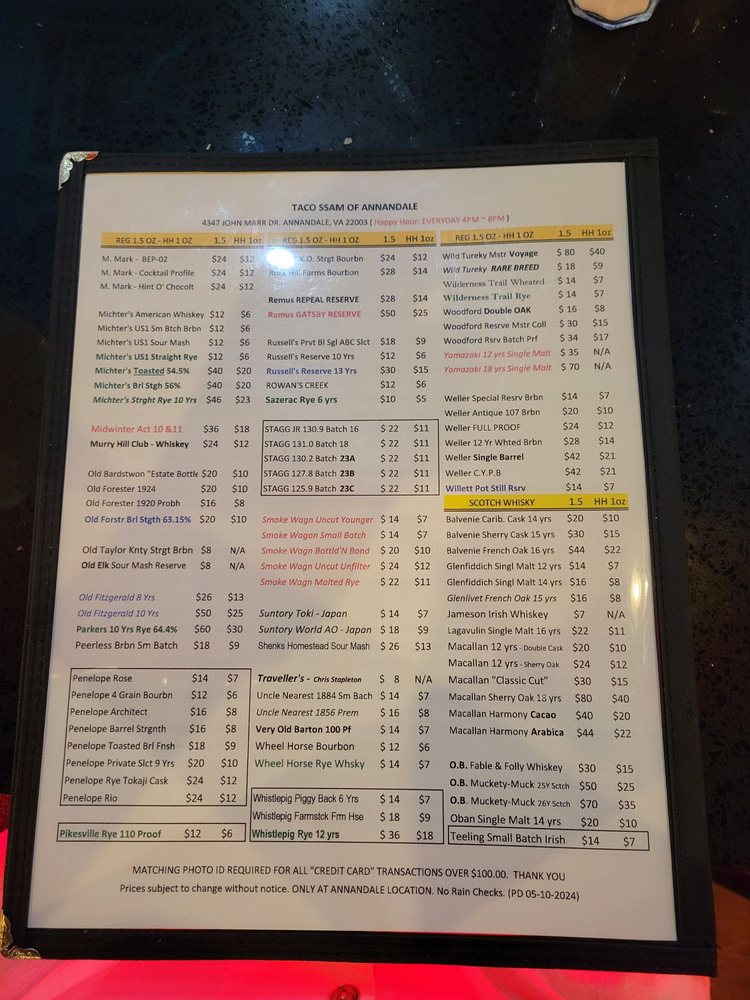 TACO SSAM OF ANNANDALE
4347 JOHN MARR DR. ANNANDALE, VA 22003 ( Happy Hour: EVERYDAY 4PM ~ 8PM )
REG 1.5 OZ - HH 1 OZ 1.5 HH 1oz
M. Mark - BEP-02 $24 $12
M. Mark - Cocktail Profile $24 $12
M. Mark - Hint O' Chocolt $24 $12
Michter's American Whiskey $12 $6
Michter's US1 Sm Btch Brbn $12 $6
Michter's US1 Sour Mash $12 $6
Michter's US1 Straight Rye $12 $6
Michter's Toasted 54.5% $40 $20
Michter's Brl Stgh 56% $40 $20
Michter's Strght Rye 10 Yrs $46 $23
Midwinter Act 10 &11 $36 $18
Murry Hill Club - Whiskey $24 $12
Old Bardstwon "Estate Bottle $20 $10
Old Forester 1924 $20 $10
Old Forester 1920 Probh $16 $8
Old Forstr Brl Stgth 63.15% $20 $10
Old Taylor Knty Strgt Brbn $8 N/A
Old Elk Sour Mash Reserve $8 N/A
Old Fitzgerald 8 Yrs $26 $13
Old Fitzgerald 10 Yrs $50 $25
Parkers 10 Yrs Rye 64.4% $60 $30
Peerless Brbn Sm Batch $18 $9
Penelope Rose $14 $7
Penelope 4 Grain Bourbn $12 $6
Penelope Architect $16 $8
Penelope Barrel Strgnth $16 $8
Penelope Toasted Brl Fnsh $18 $9
Penelope Private Slct 9 Yrs $20 $10
Penelope Rye Tokaji Cask $24 $12
Penelope Rio $24 $12
Pikesville Rye 110 Proof $12 $6
REG 1.5 OZ - HH 1 OZ 1.5 HH 1oz
X.O. Strgt Bourbn $24 $12
Hill Farms Bourbon $28 $14
Remus REPEAL RESERVE $28 $14
Remus GATSBY RESERVE $50 $25
Russell's Prvt Bl Sgl ABC Slct $18 $9
Russell's Reserve 10 Yrs $12 $6
Russell's Reserve 13 Yrs $30 $15
ROWAN'S CREEK $12 $6
Sazerac Rye 6 yrs $10 $5
STAGG JR 130.9 Batch 16 $ 22 $11
STAGG 131.0 Batch 18 $ 22 $11
STAGG 130.2 Batch 23A $ 22 $11
STAGG 127.8 Batch 23B $ 22 $11
STAGG 125.9 Batch 23C $ 22 $11
Smoke Wagn Uncut Younger $ 14 $7
Smoke Wagon Small Batch $ 14 $7
Smoke Wagn Bottld'N Bond $ 20 $10
Smoke Wagn Uncut Unfilter $ 24 $12
Smoke Wagn Malted Rye $ 22 $11
Suntory Toki - Japan $ 14 $7
Suntory World AO - Japan $ 18 $9
Shenks Homestead Sour Mash $ 26 $13
Traveller's - Chris Stapleton $ 8 N/A
Uncle Nearest 1884 Sm Bach $ 14 $7
Uncle Nearest 1856 Prem $ 16 $8
Very Old Barton 100 Pf $ 14 $7
Wheel Horse Bourbon $ 12 $6
Wheel Horse Rye Whsky $ 14 $7
Whistlepig Piggy Back 6 Yrs $ 14 $7
Whistlepig Farmstck Frm Hse $ 18 $9
Whistlepig Rye 12 yrs $ 36 $18
REG 1.5 OZ - HH 1 OZ 1.5 HH 1oz
Wild Tureky Mstr Voyage $ 80 $40
Wild Tureky RARE BREED $ 18 $9
Wilderness Trail Wheated $ 14 $7
Wilderness Trail Rye $ 14 $7
Woodford Double OAK $ 16 $8
Woodford Resrve Mstr Coll $ 30 $15
Woodford Rsrv Batch Prf $ 34 $17
Yamazaki 12 yrs Single Malt $ 35 N/A
Yamazaki 18 yrs Single Malt $ 70 N/A
Weller Special Resrv Brbn $14 $7
Weller Antique 107 Brbn $20 $10
Weller FULL PROOF $24 $12
Weller 12 Yr Whted Brbn $28 $14
Weller Single Barrel $42 $21
Weller C.Y.P.B $42 $21
Willett Pot Still Rsrv $14 $7
SCOTCH WHISKY 1.5 HH 1oz
Balvenie Carib. Cask 14 yrs $20 $10
Balvenie Sherry Cask 15 yrs $30 $15
Balvenie French Oak 16 yrs $44 $22
Glenfiddich Singl Malt 12 yrs $14 $7
Glenfiddich Singl Malt 14 yrs $16 $8
Glenlivet French Oak 15 yrs $16 $8
Jameson Irish Whiskey $7 N/A
Lagavulin Single Malt 16 yrs $22 $11
Macallan 12 yrs - Double Cask $20 $10
Macallan 12 yrs - Sherry Oak $24 $12
Macallan "Classic Cut" $30 $15
Macallan Sherry Oak 18 yrs $80 $40
Macallan Harmony Cacao $40 $20
Macallan Harmony Arabica $44 $22
O.B. Fable & Folly Whiskey $30 $15
O.B. Muckety-Muck 25Y Sctch $50 $25
O.B. Muckety-Muck 26Y Sctch $70 $35
Oban Single Malt 14 yrs $20 $10
Teeling Small Batch Irish $14 $7
MATCHING PHOTO ID REQUIRED FOR ALL "CREDIT CARD" TRANSACTIONS OVER $100.00. THANK YOU
Prices subject to change without notice. ONLY AT ANNANDALE LOCATION. No Rain Checks. (PD 05-10-2024)